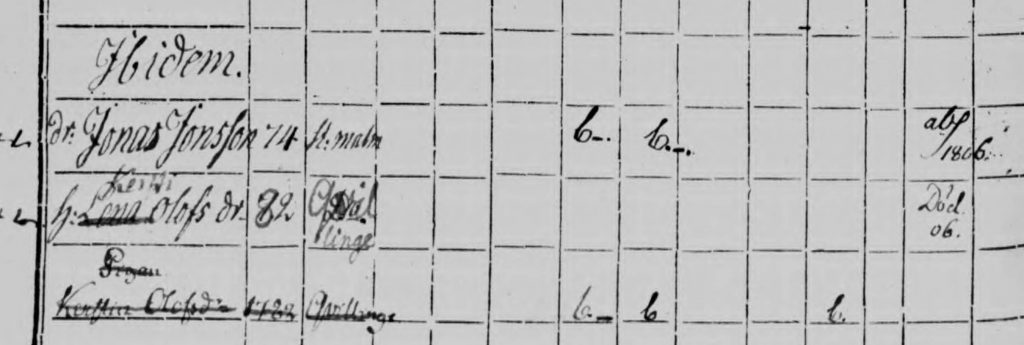 Ibidem.
dr. Jonas Jonsson 74 St. malm b. b. abs
1806.
Kersti
h. Lena Olofs dr. 82 Qvil Död
linge 06.
Pigan
Kerstin Olofsdr 1782 Qvillinge b. b b.